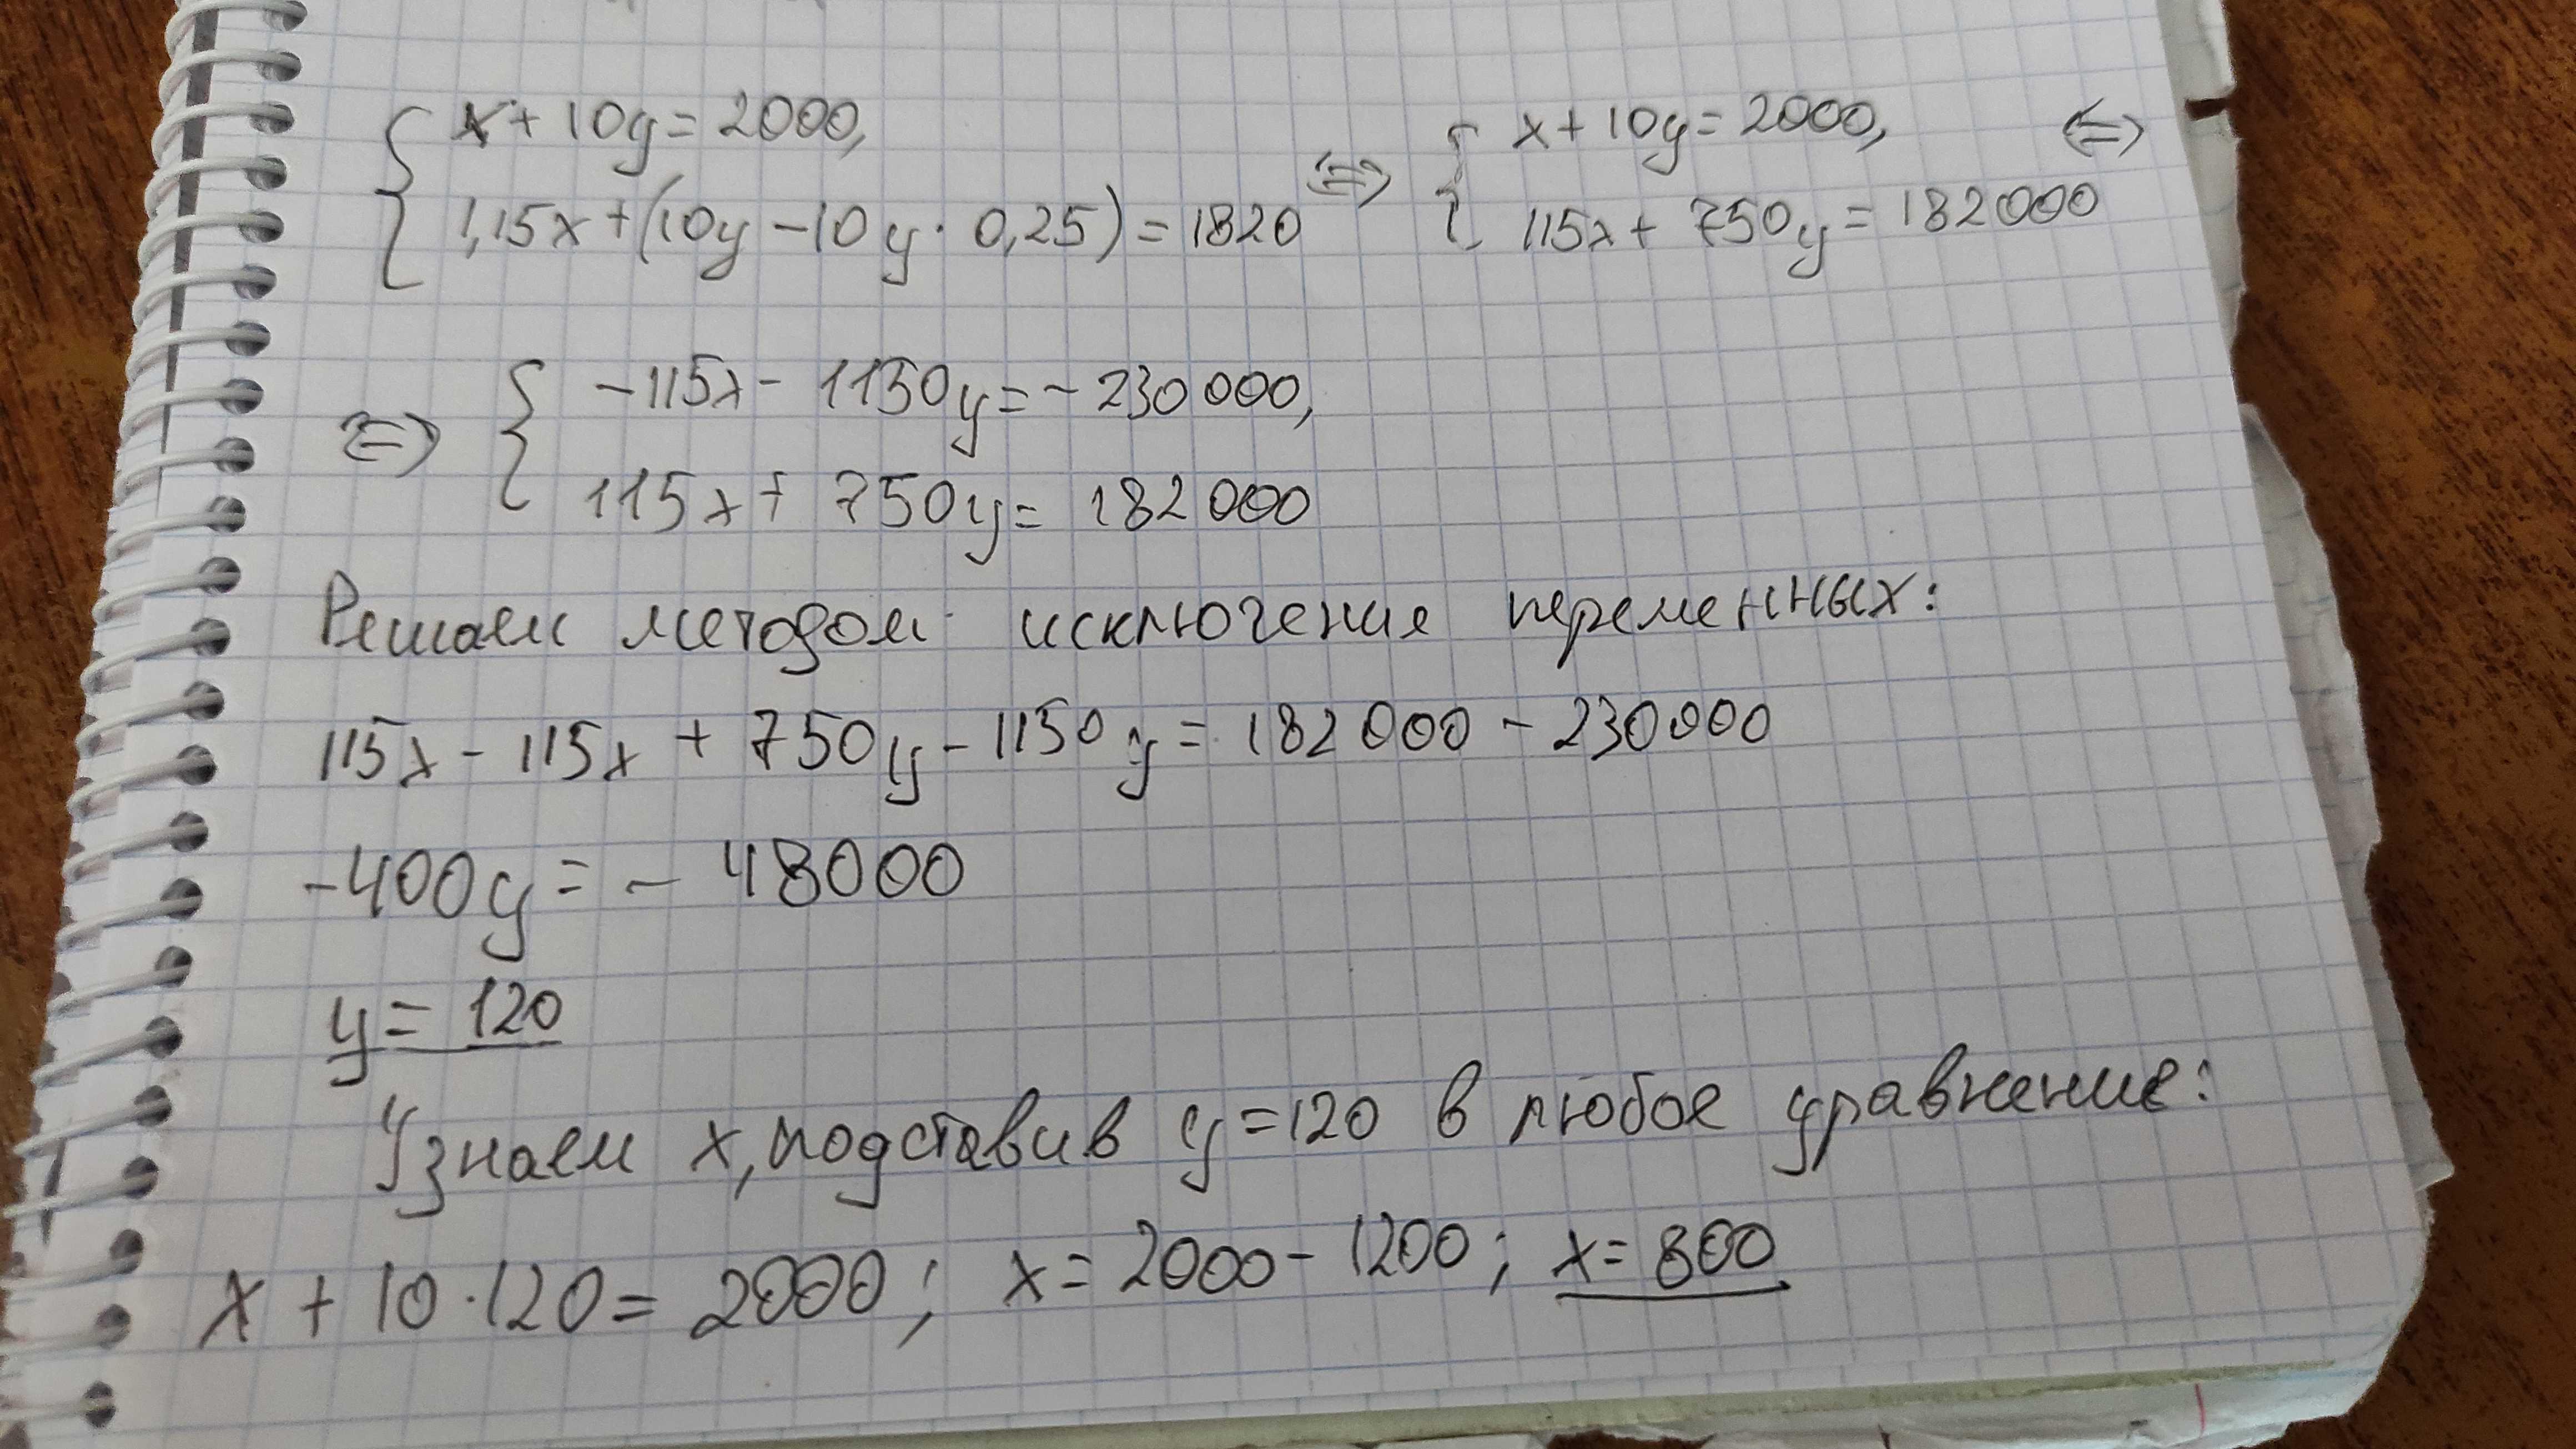 { x + 10y = 2000, ⇔ { x + 10y = 2000, ⇔
1,15x + (10y - 10y · 0,25) = 1820 115x + 750y = 182000
⇔ { -115x - 1150y = -230000,
115x + 750y = 182000
Решаем методом исключения переменных:
115x - 115x + 750y - 1150y = 182000 - 230000
-400y = - 48000
y = 120
Узнаем x, подставив y = 120 в любое уравнение:
x + 10 · 120 = 2000 ; x = 2000 - 1200 ; x = 800